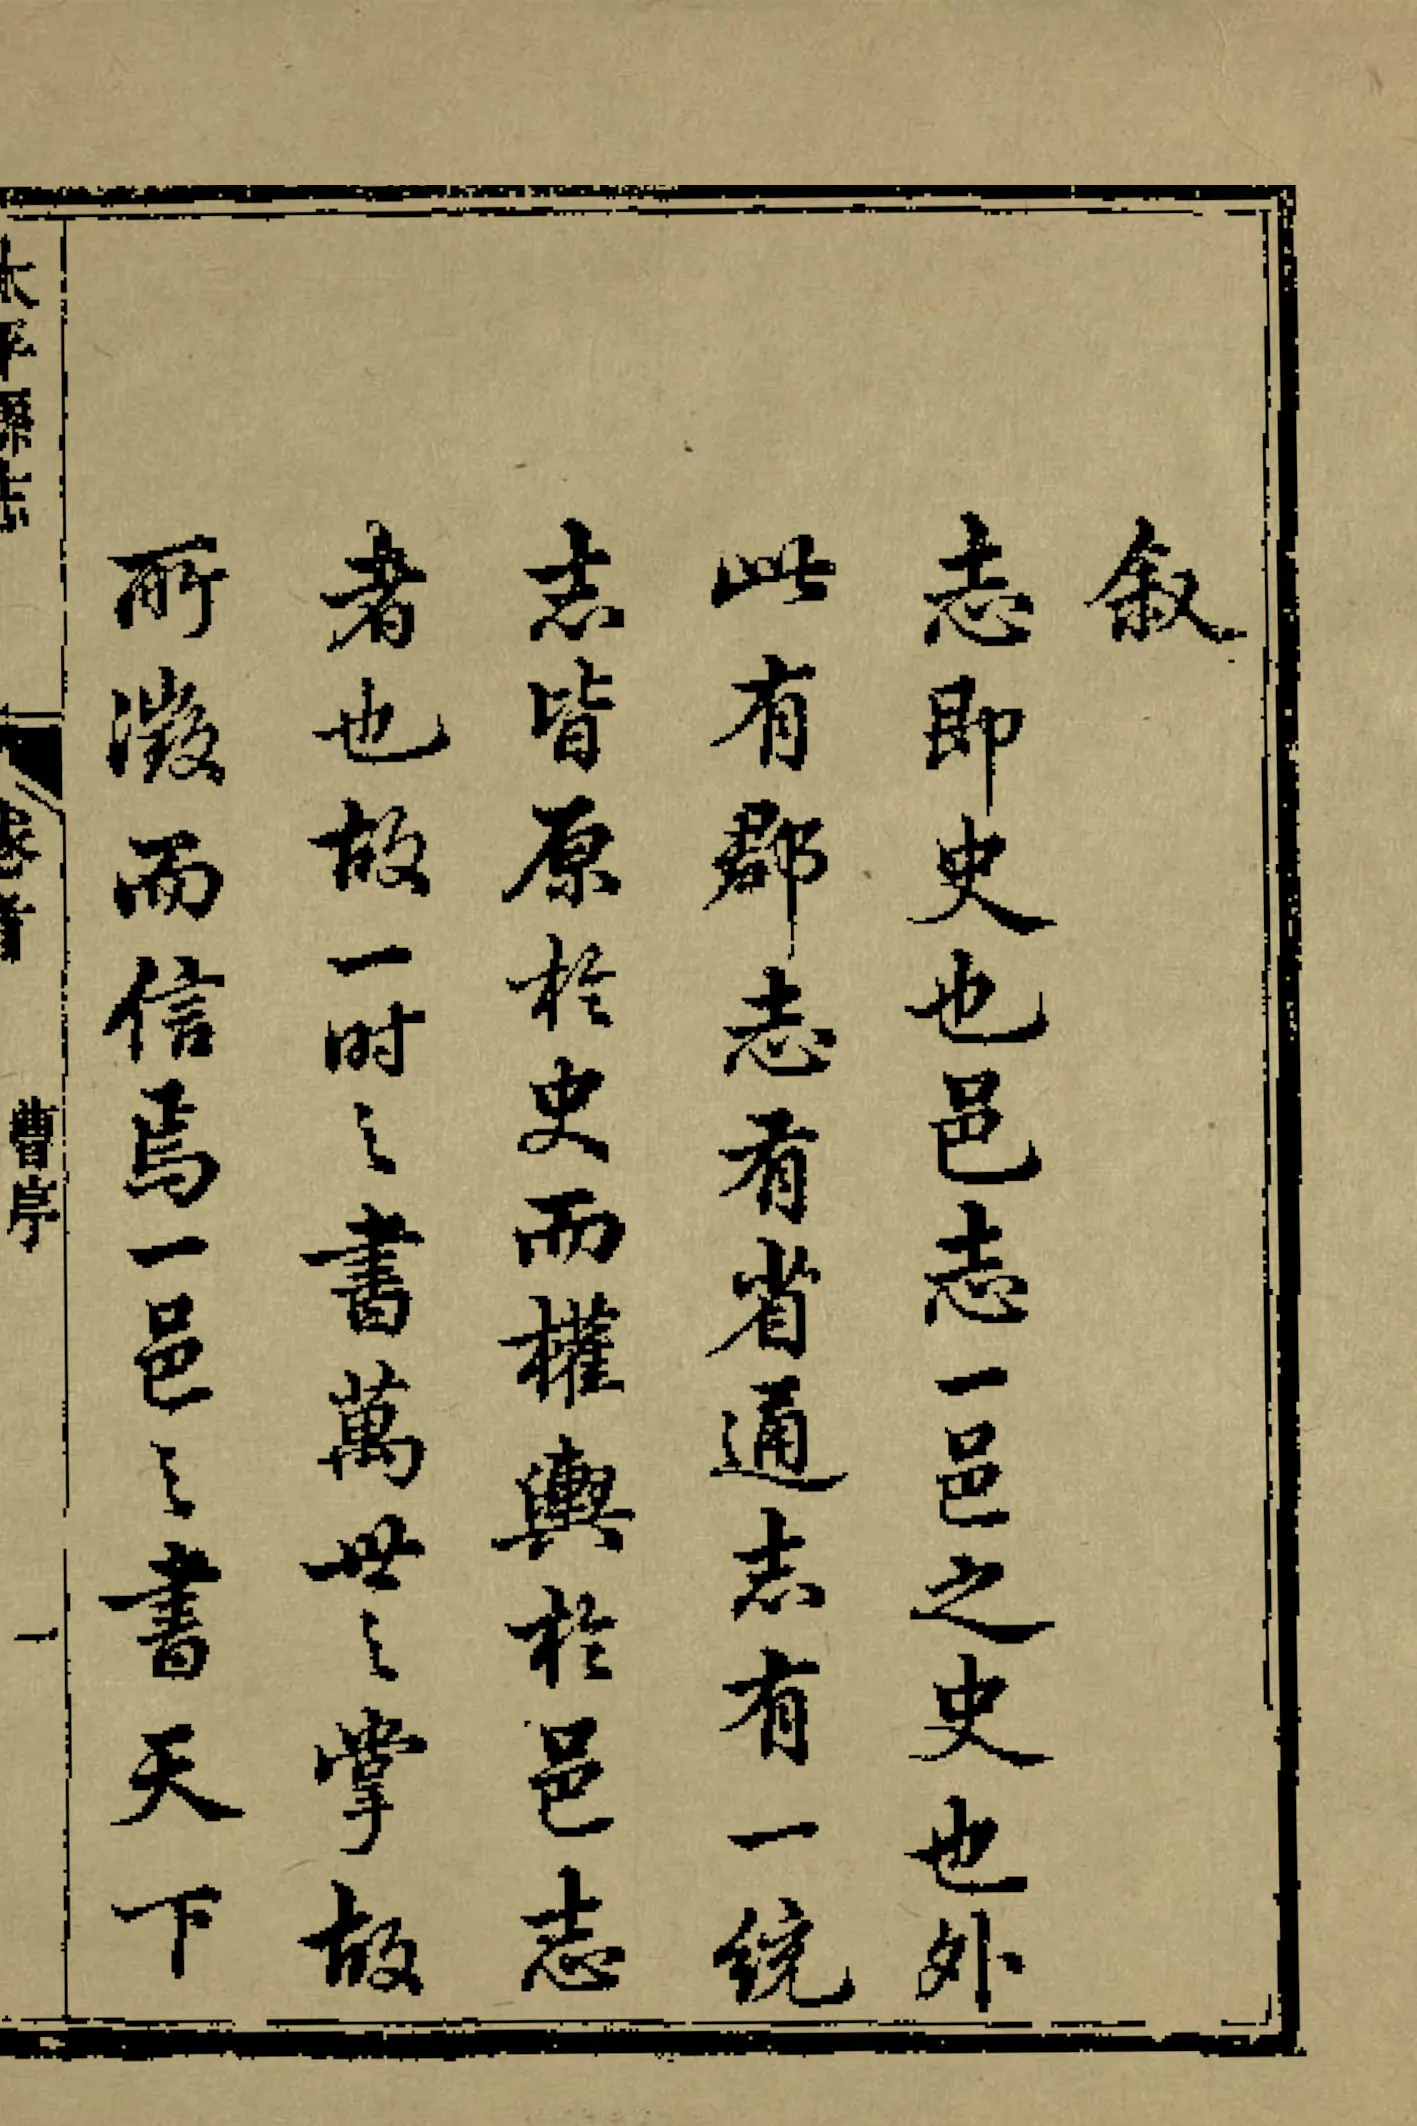 叙
志即史也邑志一邑之史也外
此有郡志有省通志有一統
志皆原於史而權輿於邑志
者也故一时之書萬世之掌故
所徴而信焉一邑之書天下
太平縣志
卷首
曹序
一